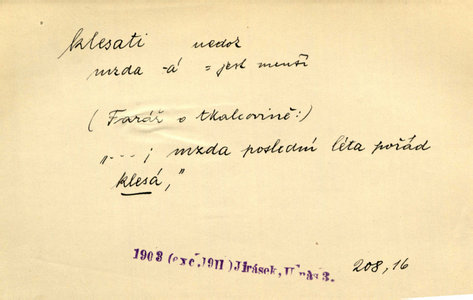 klesati nedok
mzda -á = jest menší
(Farář o tkalcovině:)
„--- ; mzda poslední léta pořád
klesá,"
1903 (exc. 1911) Jirásek, U nás 3. 208, 16